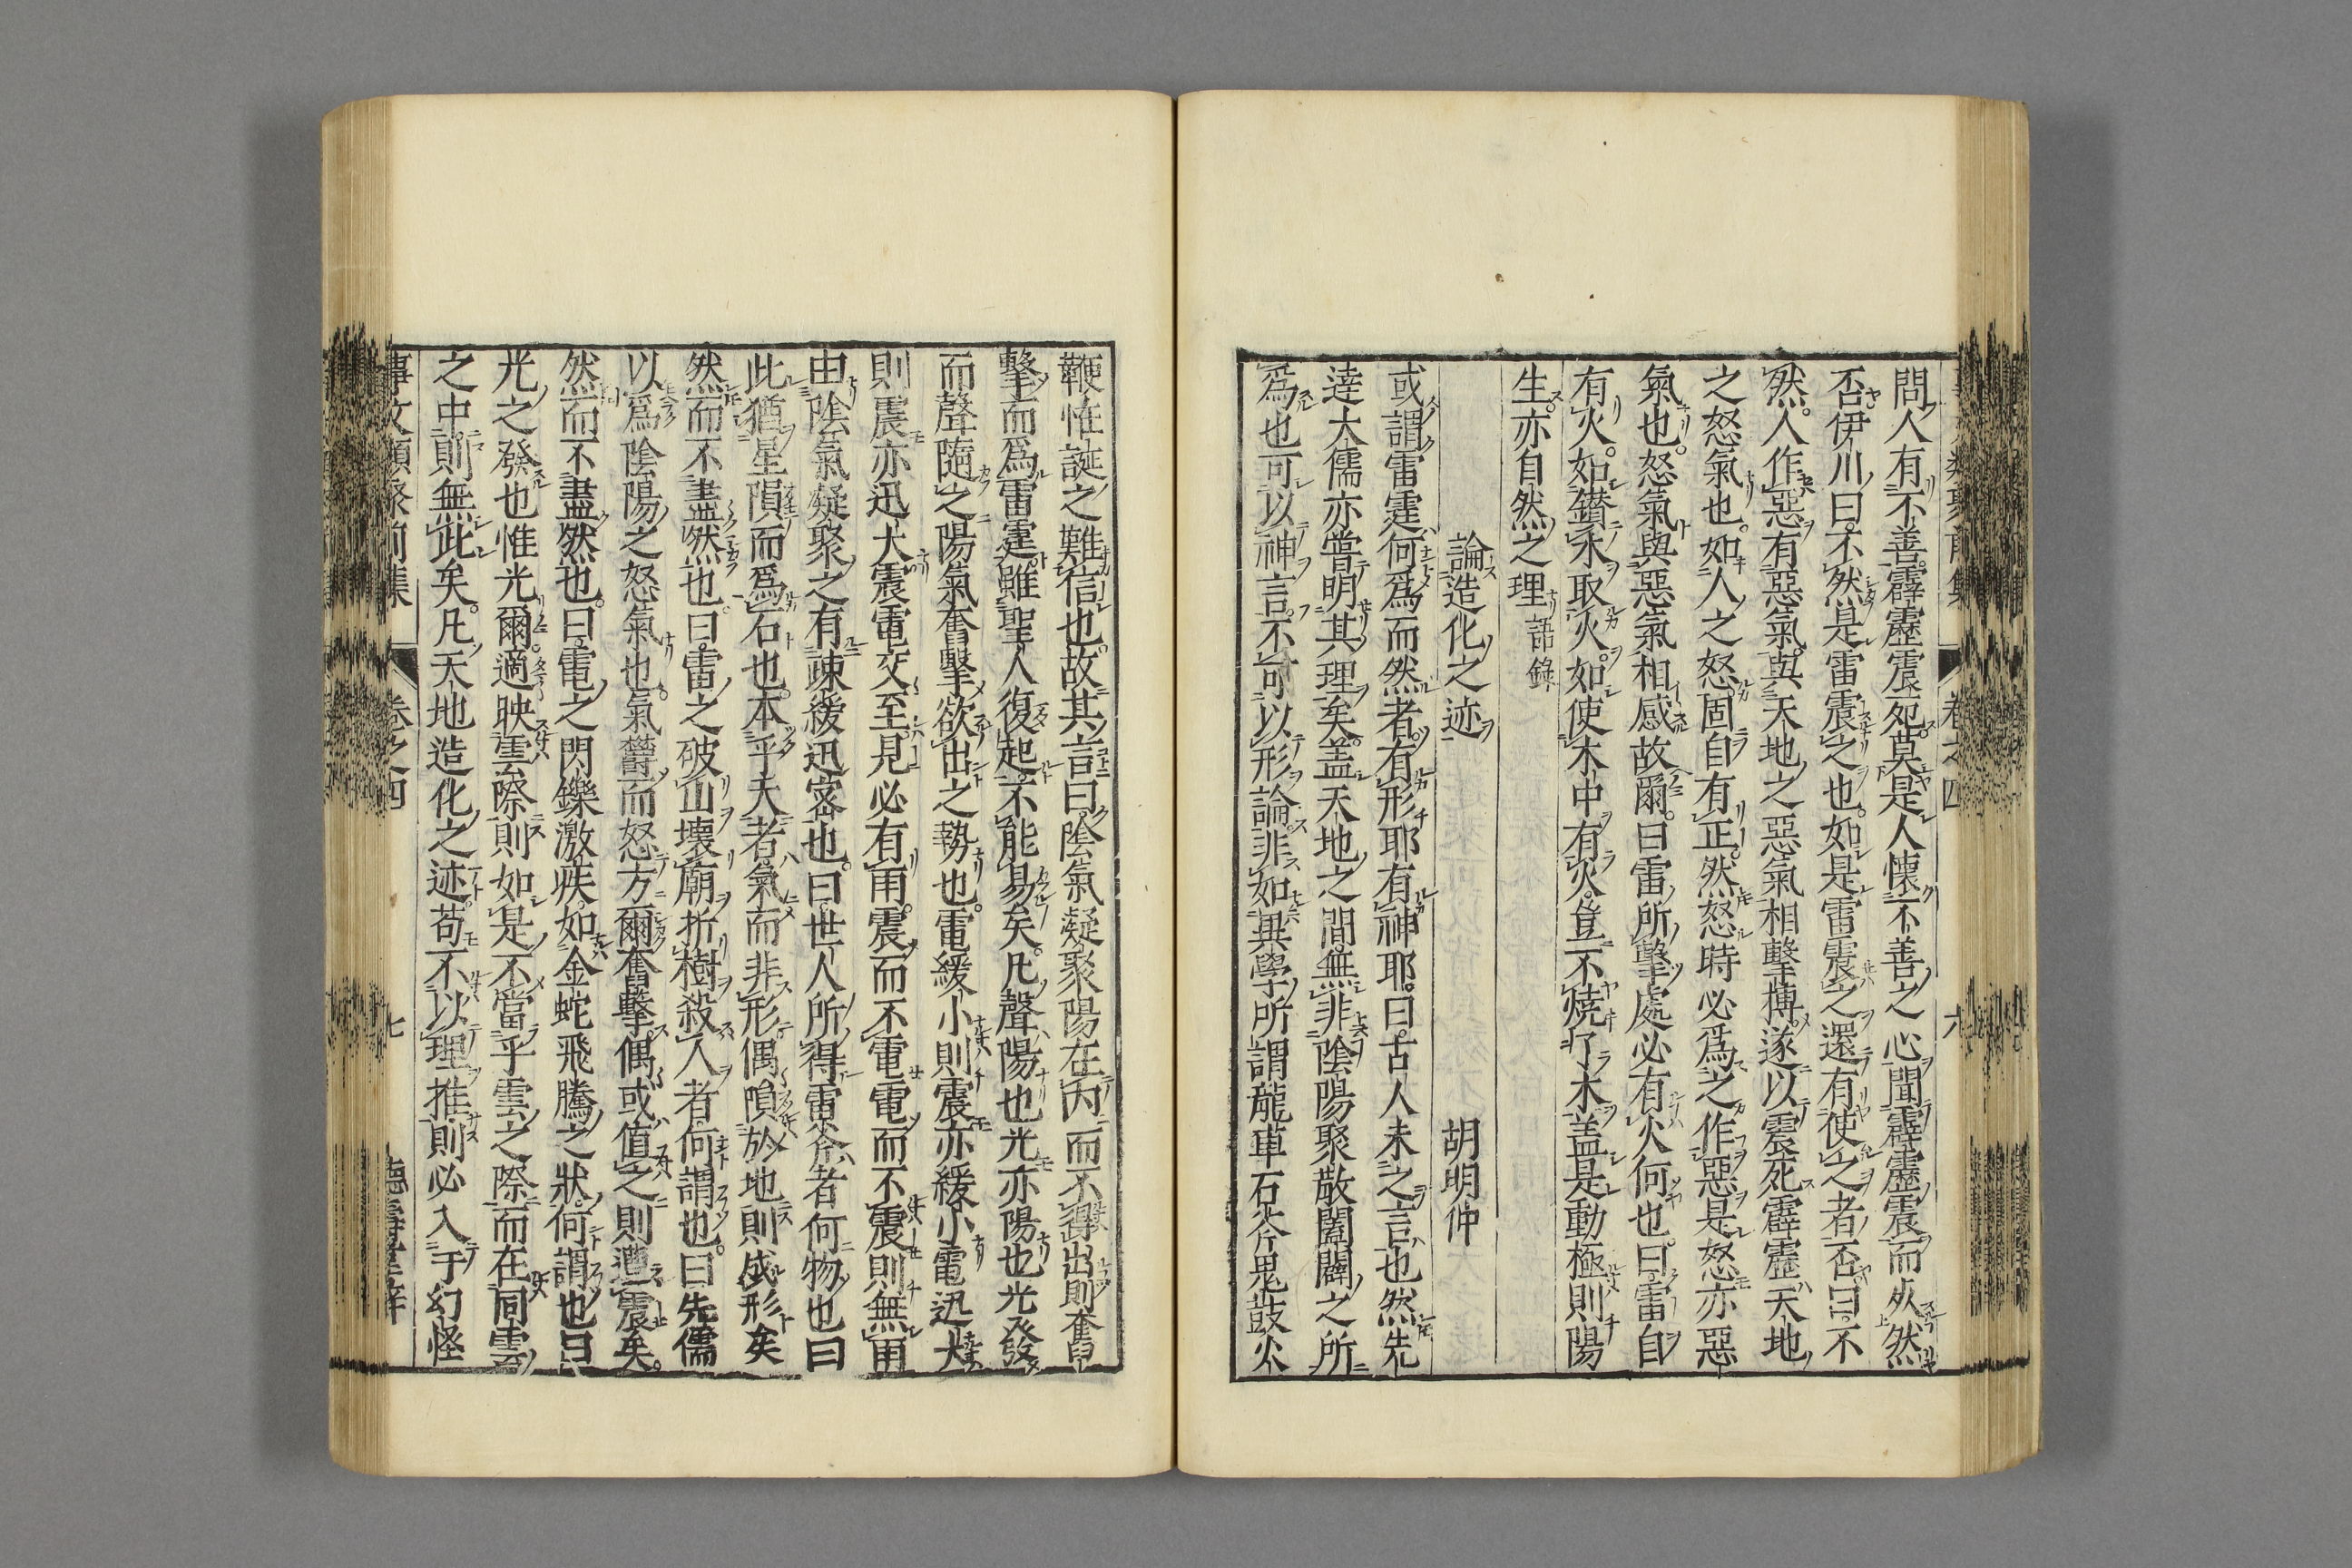 問人有不善霹靂震死莫是人懷不善之心聞霹靂震而死然
否伊川曰不然是雷震之也如是雷震之還有使之者否曰不
然人作惡有惡氣與天地之惡氣相擊搏遂以震死霹靂天地
之怒氣也如人之怒固自有正然怒時必爲之作惡是怒亦惡
氣也怒氣與惡氣相感故爾曰雷所擊處必有火何也曰雷自
有火如鑚木取火如使木中有火豈不燒了木盖是動極則陽
生亦自然之理語錄
論造化之迹 胡明仲
或謂雷霆何爲而然者有形耶有神耶曰古人未之言也然先
達大儒亦嘗明其理矣盖天地之間無非陰陽聚散闔闢之所
爲也可以神言不可以形論非如異學所謂龍車石斧鬼鼓火
鞭怪誕之難信也故其言曰陰氣凝聚陽在内而不得出則奮
擊而爲雷霆雖聖人復起不能易矣凡聲陽也光亦陽也光發
而聲隨之陽氣奮擊欲出之勢也電緩小則震亦緩小電迅大
則震亦迅大震電交至見必有雨震而不電電而不震則無雨
由陰氣凝聚之有疎緩迅密也曰世人所得雷斧者何物也曰
此猶星隕而爲石也本乎天者氣而非形偶隕於地則成形矣
然而不盡然也曰雷之破山壞廟折樹殺人者何謂也曰先儒
以爲陰陽之怒氣也氣欝而怒方爾奮擊偶或值之則遭震矣
然而不盡然也曰電之閃鑠激疾如金蛇飛騰之狀何謂也曰
光之發也惟光爾適映雲際則如是不當乎雲之際而在同雲
之中則無此矣凡天地造化之迹苟不以理推則必入于幻怪
事文類聚前集 卷之四 七